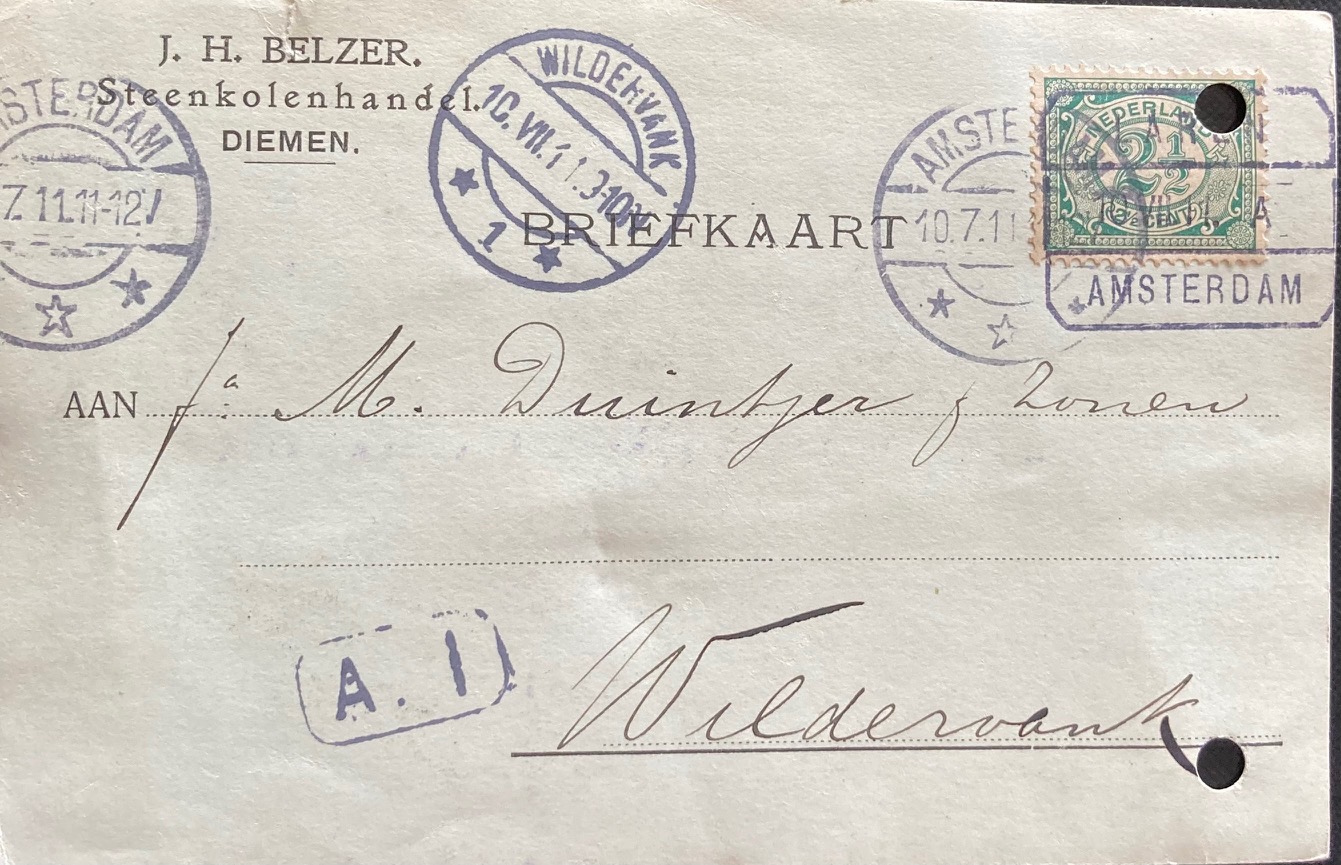 J. H. BELZER.
Steenkolenhandel.
DIEMEN.
AMSTERDAM
7.11.11-12V
WILDERVANK
10.VII.11.9-10
1
BRIEFKAART
AMSTE
10.7.11
NEDERLAND
2 1/2
2½ CENT
AMSTERDAM
AAN fa. M. Duintjer & Zonen
A. 1
Wildervank